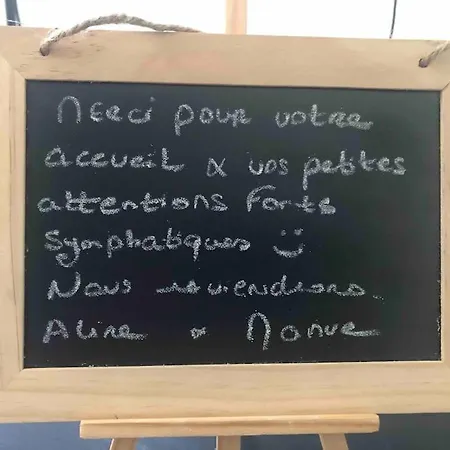 Merci pour votre
accueil & vos petites
attentions forts
symphatiques :)
Nous reviendrons.
Aline &